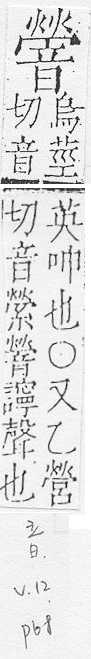 烏莖
切音
英呻也○又乙營
切音縈聲也
五音
v.12
p68